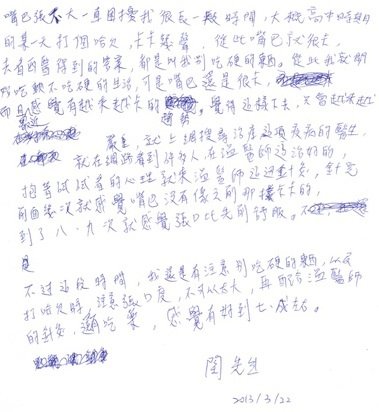 嘴巴張不大一直困擾我很長一段時間，大概高中時期
的某一天打個哈欠，卡卡聲聲，從此嘴巴就很卡，
去看西醫得到的答案，都是叫我別吃硬的東西。從此我就開
始吃軟不吃硬的生活，可是嘴巴還是很卡，
而且感覺有越來越卡的趨勢。覺得這樣下去，只會越來越
嚴重，就上網搜尋治療這項疾病的醫生，
就在網路看到許多人在溫醫師這治好的，
抱著試試看的心理就來溫醫師這邊針灸，針完
前面幾次就感覺嘴巴沒有像之前那樣卡卡的，
到了八、九次就感覺張口比先前舒服。
是
不過這段時間，我還是有注意別吃硬的東西，以及
打哈欠時，注意張口度，不可以太大，再配合溫醫師
的針灸，適吃藥，感覺有好到七、八成左右。
閻先生
2013/3/22